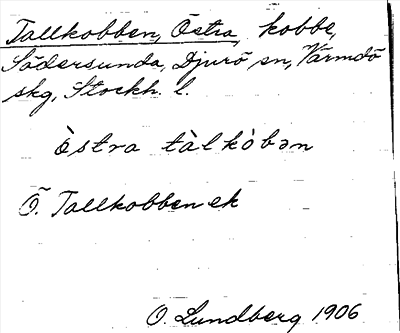 Tallkobben, Östra, kobbe,
Södersunda, Djurö sn, Värmdö
skg, Stockh. l.
òstra tàlkòbən
Ö. Tallkobben ek
O. Lundberg 1906